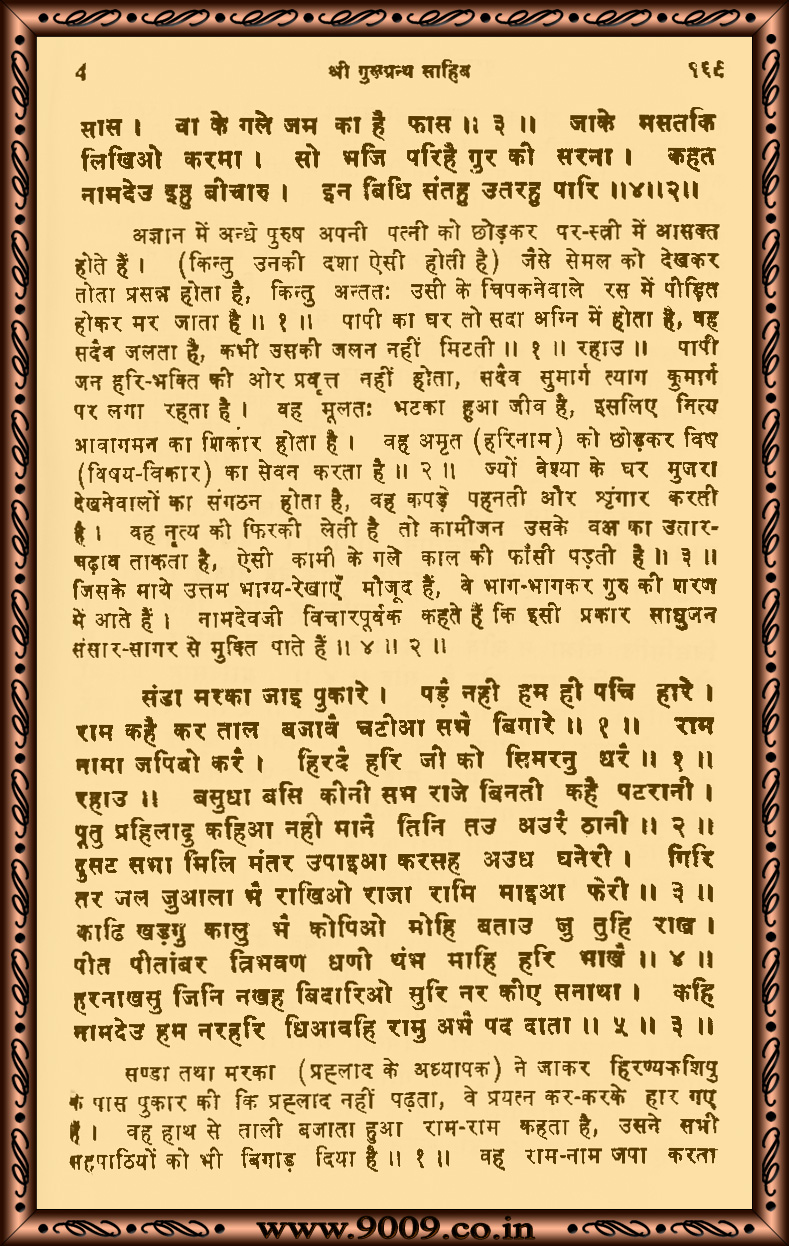 4 श्री गुरूग्रन्थ साहिब १६९
सास । वा के गले जम का है फास ॥ ३ ॥ जाके मसतकि
लिखिओ करमा । सो भजि परिहै गुर की सरना । कहत
नामदेउ इहु बीचारु । इन बिधि संतहु उतरहु पारि ॥४॥२॥
अज्ञान में अन्धे पुरुष अपनी पत्नी को छोड़कर पर-स्त्री में आसक्त
होते हैं । (किन्तु उनकी दशा ऐसी होती है) जैसे सेमल को देखकर
तोता प्रसन्न होता है, किन्तु अन्ततः उसी के चिपकनेवाले रस में पीड़ित
होकर मर जाता है ॥ १ ॥ पापी का घर तो सदा अग्नि में होता है, वह
सदैव जलता है, कभी उसकी जलन नहीं मिटती ॥ १ ॥ रहाउ ॥ पापी
जन हरि-भक्ति की ओर प्रवृत्त नहीं होता, सदैव सुमार्ग त्याग कुमार्ग
पर लगा रहता है । वह मूलतः भटका हुआ जीव है, इसलिए नित्य
आवागमन का शिकार होता है । वह अमृत (हरिनाम) को छोड़कर विष
(विषय-विकार) का सेवन करता है ॥ २ ॥ ज्यों वेश्या के घर मुजरा
देखनेवालों का संगठन होता है, वह कपड़े पहनती और शृंगार करती
है । वह नृत्य की फिरकी लेती है तो कामीजन उसके वक्ष का उतार-
चढ़ाव ताकता है, ऐसी कामी के गले काल की फाँसी पड़ती है ॥ ३ ॥
जिसके माथे उत्तम भाग्य-रेखाएँ मौजूद हैं, वे भाग-भागकर गुरु की शरण
में आते हैं । नामदेवजी विचारपूर्वक कहते हैं कि इसी प्रकार साधुजन
संसार-सागर से मुक्ति पाते हैं ॥ ४ ॥ २ ॥
संडा मरका जाइ पुकारे । पड़ै नही हम ही पचि हारे ।
राम कहै कर ताल बजावै चटीआ सभै बिगारे ॥ १ ॥ राम
नामा जपिबो करै । हिरदै हरि जी को सिमरनु धरै ॥ १ ॥
रहाउ ॥ बसुधा बसि कीनी सभ राजे बिनती कहै पटरानी ।
पूतु प्रहिलादु कहिआ नही मानै तिनि तउ अउरै ठानी ॥ २ ॥
दुसट सभा मिलि मंतर उपाइआ करसह अउध घनेरी । गिरि
तर जल जुआला भै राखिओ राजा रामि माइआ फेरी ॥ ३ ॥
काढि खड़गु कालु भै कोपिओ मोहि बताउ जु तुहि राखै ।
पीत पीतांबर त्रिभवण धणी थंभ माहि हरि भाखै ॥ ४ ॥
हरनाखसु जिनि नखह बिदारिओ सुरि नर कीए सनाथा । कहि
नामदेउ हम नरहरि धिआवहि रामु अभै पद दाता ॥ ५ ॥ ३ ॥
सण्डा तथा मरका (प्रह्लाद के अध्यापक) ने जाकर हिरण्यकशिपु
के पास पुकार की कि प्रह्लाद नहीं पढ़ता, वे प्रयत्न कर-करके हार गए
हैं । वह हाथ से ताली बजाता हुआ राम-राम कहता है, उसने सभी
सहपाठियों को भी बिगाड़ दिया है ॥ १ ॥ वह राम-नाम जपा करता
www.9009.co.in